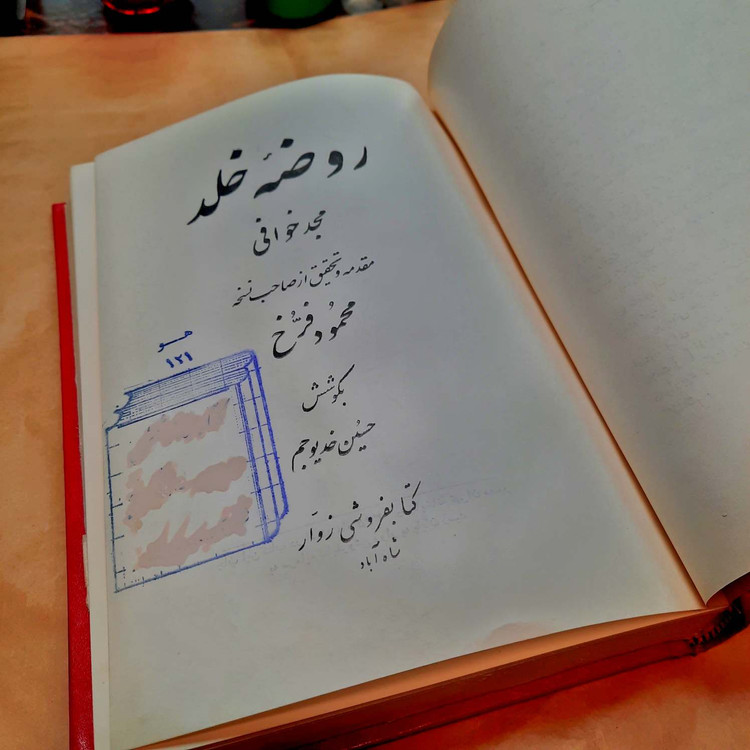 روضهٔ خلد
مجد خوافی
مقدمه و تحقیق از صاحب نسخه
محمود فرّخ
بکوشش
حسین خدیوجم
کتابفروشی زوّار
شاه آباد
هو
۱۲۱